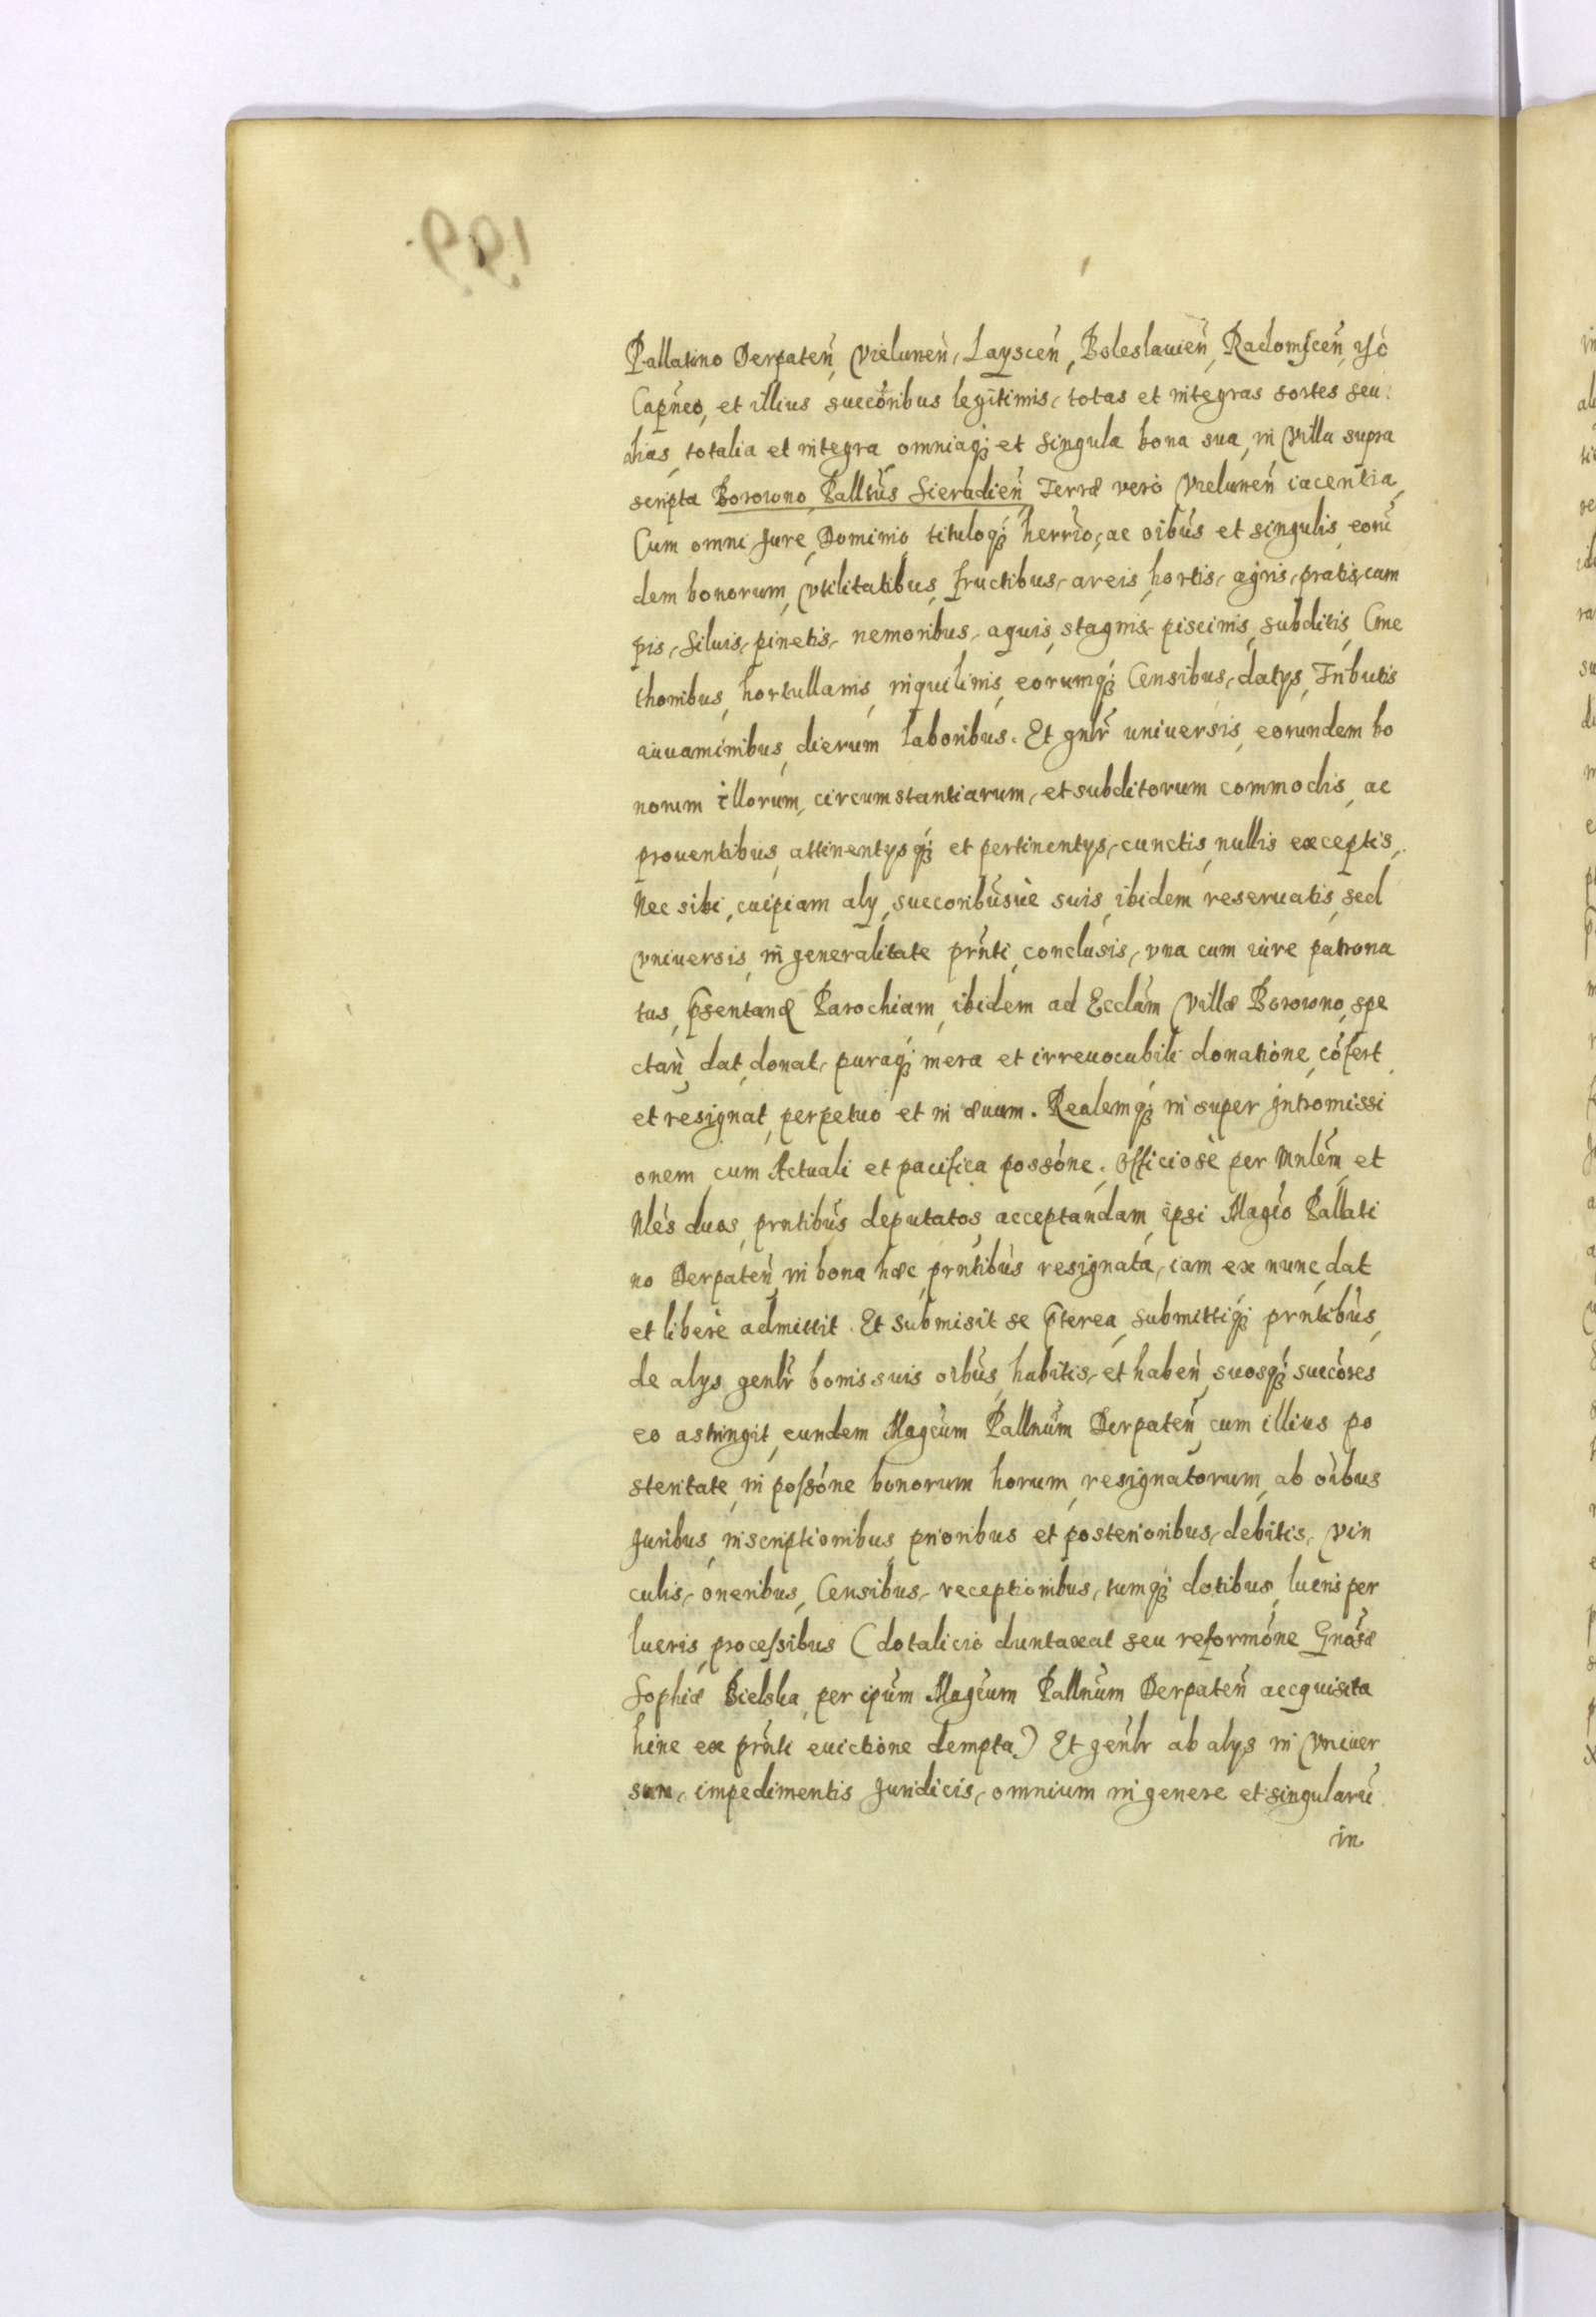 Pallatino Derpateñ, Vieluneñ, Laysceñ, Boleslauieñ, Radomsceñ,
Capñeo, et illius succoribus legitimis, totas et integras sortes seu
alias, totalia et integra, omniaq; et singula bona sua, in Villa supra
scripta Borowno, Palltus Sieradieñ, Terræ verò Vieluneñ iacentia,
Cum omni Jure, Dominio tituloq; herrio, ac oibus et singulis, eorū
dem bonorum, vtilitatibus, fructibus, areis, hortis, agris, pratis, cam
pis, Siluis, pinetis, nemoribus, aquis, stagnis, piscinis, subditis, Cme
thonibus, hortullanis, inquilinis, eorumq; Censibus, datys, Tributis
aiuuaminibus, dierum laboribus. Et gnlr universis, eorundem bo
norum illorum, circumstantiarum, et subditorum commodis, ac
prouentibus, attinentysq; et pertinentys, cunctis, nullis exceptis,
Nec sibi, cuipiam aly, succoribusuè suis, ibidem reseruatis, sed
vniuersis, in generalitate prnti, conclusis, vna cum iure patrona
tus, psentand Parochiam, ibidem ad Ecclam Villæ Borowno, spe
ctañ, dat, donat, puraq; mera et irreuocabili donatione, cōfert
et resignat, perpetuo et in æuum. Realemq; in super Intromissi
onem, cum Actuali et pacifica possōne, Officiosè per Mnlem, et
Nles duos, prntibus deputatos, acceptandam, ipsi Magco Pallati
no Derpateñ, in bona hæc, prntibus resignata, iam ex nunc, dat
et liberè admittit. Et submisit se pterea, submittiq; prntibus,
de alys genlr bonis suis oibus, habitis, et habeñ, suosq; succores
eo astringit, eundem Magcum Pallnum Derpateñ, cum illius po
steritate, in possōne bonorum horum, resignatorum, ab oibus
Juribus, inscriptionibus prioribus et posterioribus, debitis, vin
culis, oneribus, Censibus, receptionibus, tumq; dotibus, lucris per
lucris, processibus (dotalicio duntaxat seu reformōne Gnosæ
Sophiæ Bielska, per ipum Magcum Pallnum Derpateñ accquisita
hinc ex prnti euictione dempta) Et genlr ab alys in Vniuer
sum, impedimentis Juridicis, omnium in genere et singularū
in
199.